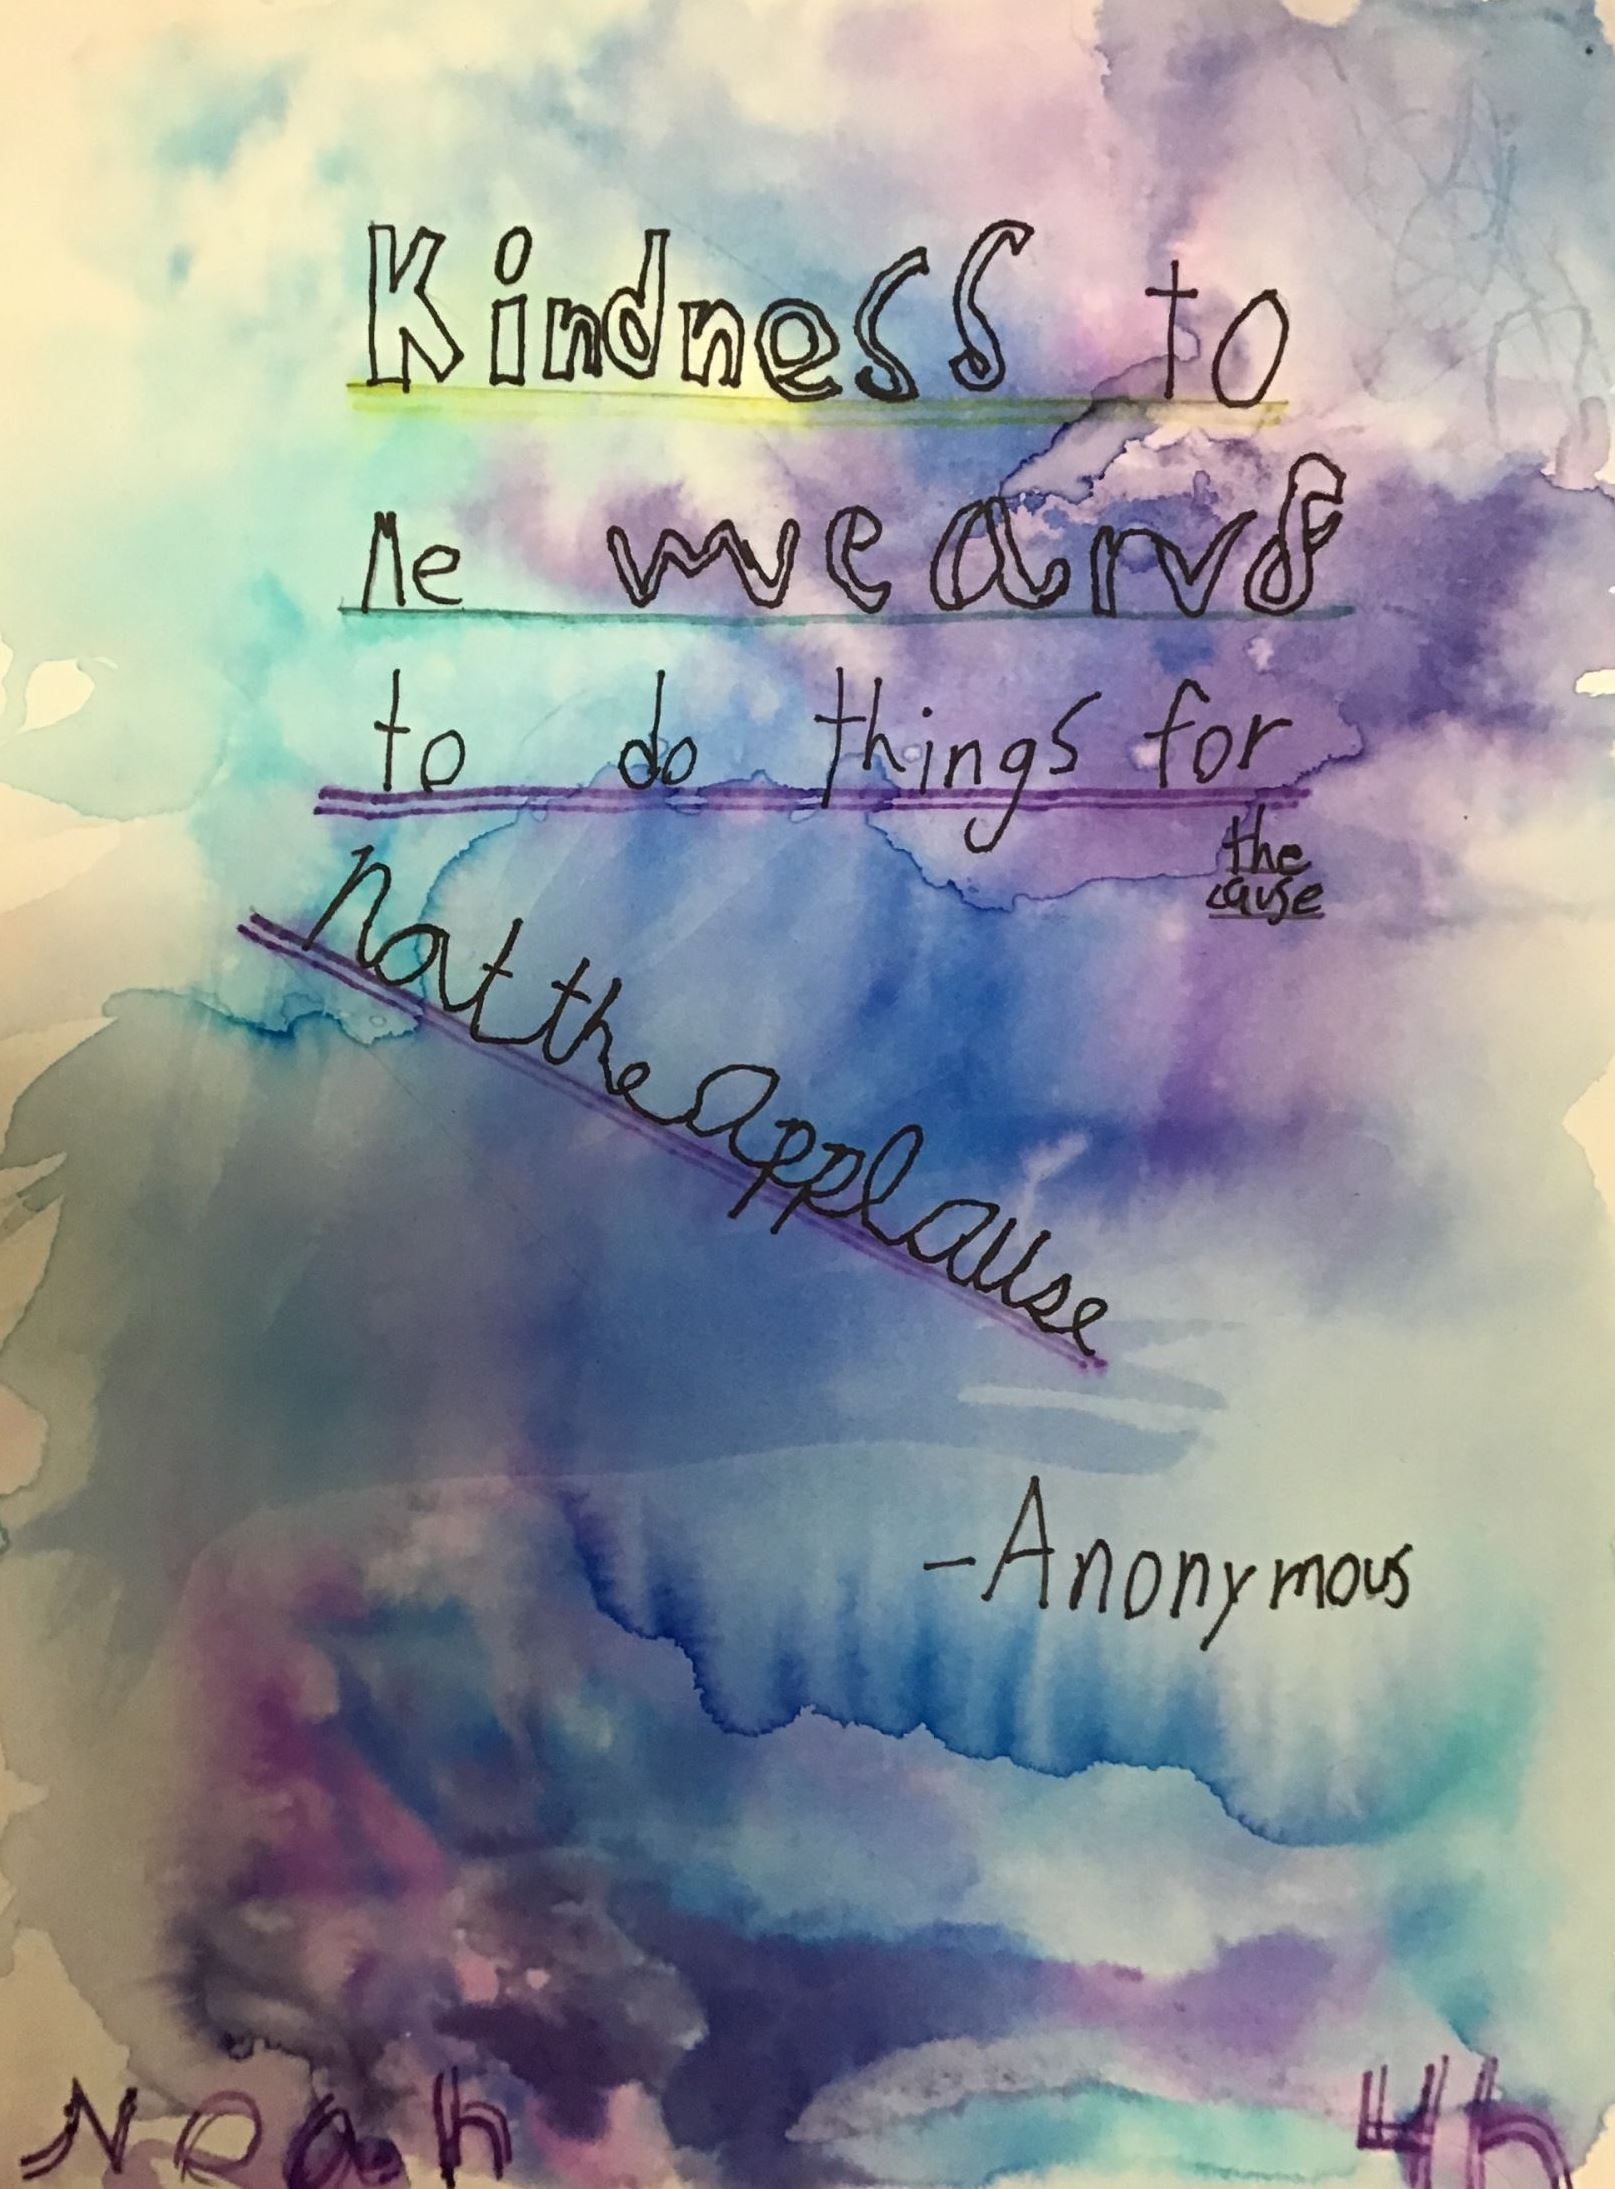 Kindness to
Me means
to do things for
the
cause
not the applause
-Anonymous
Noah
4h